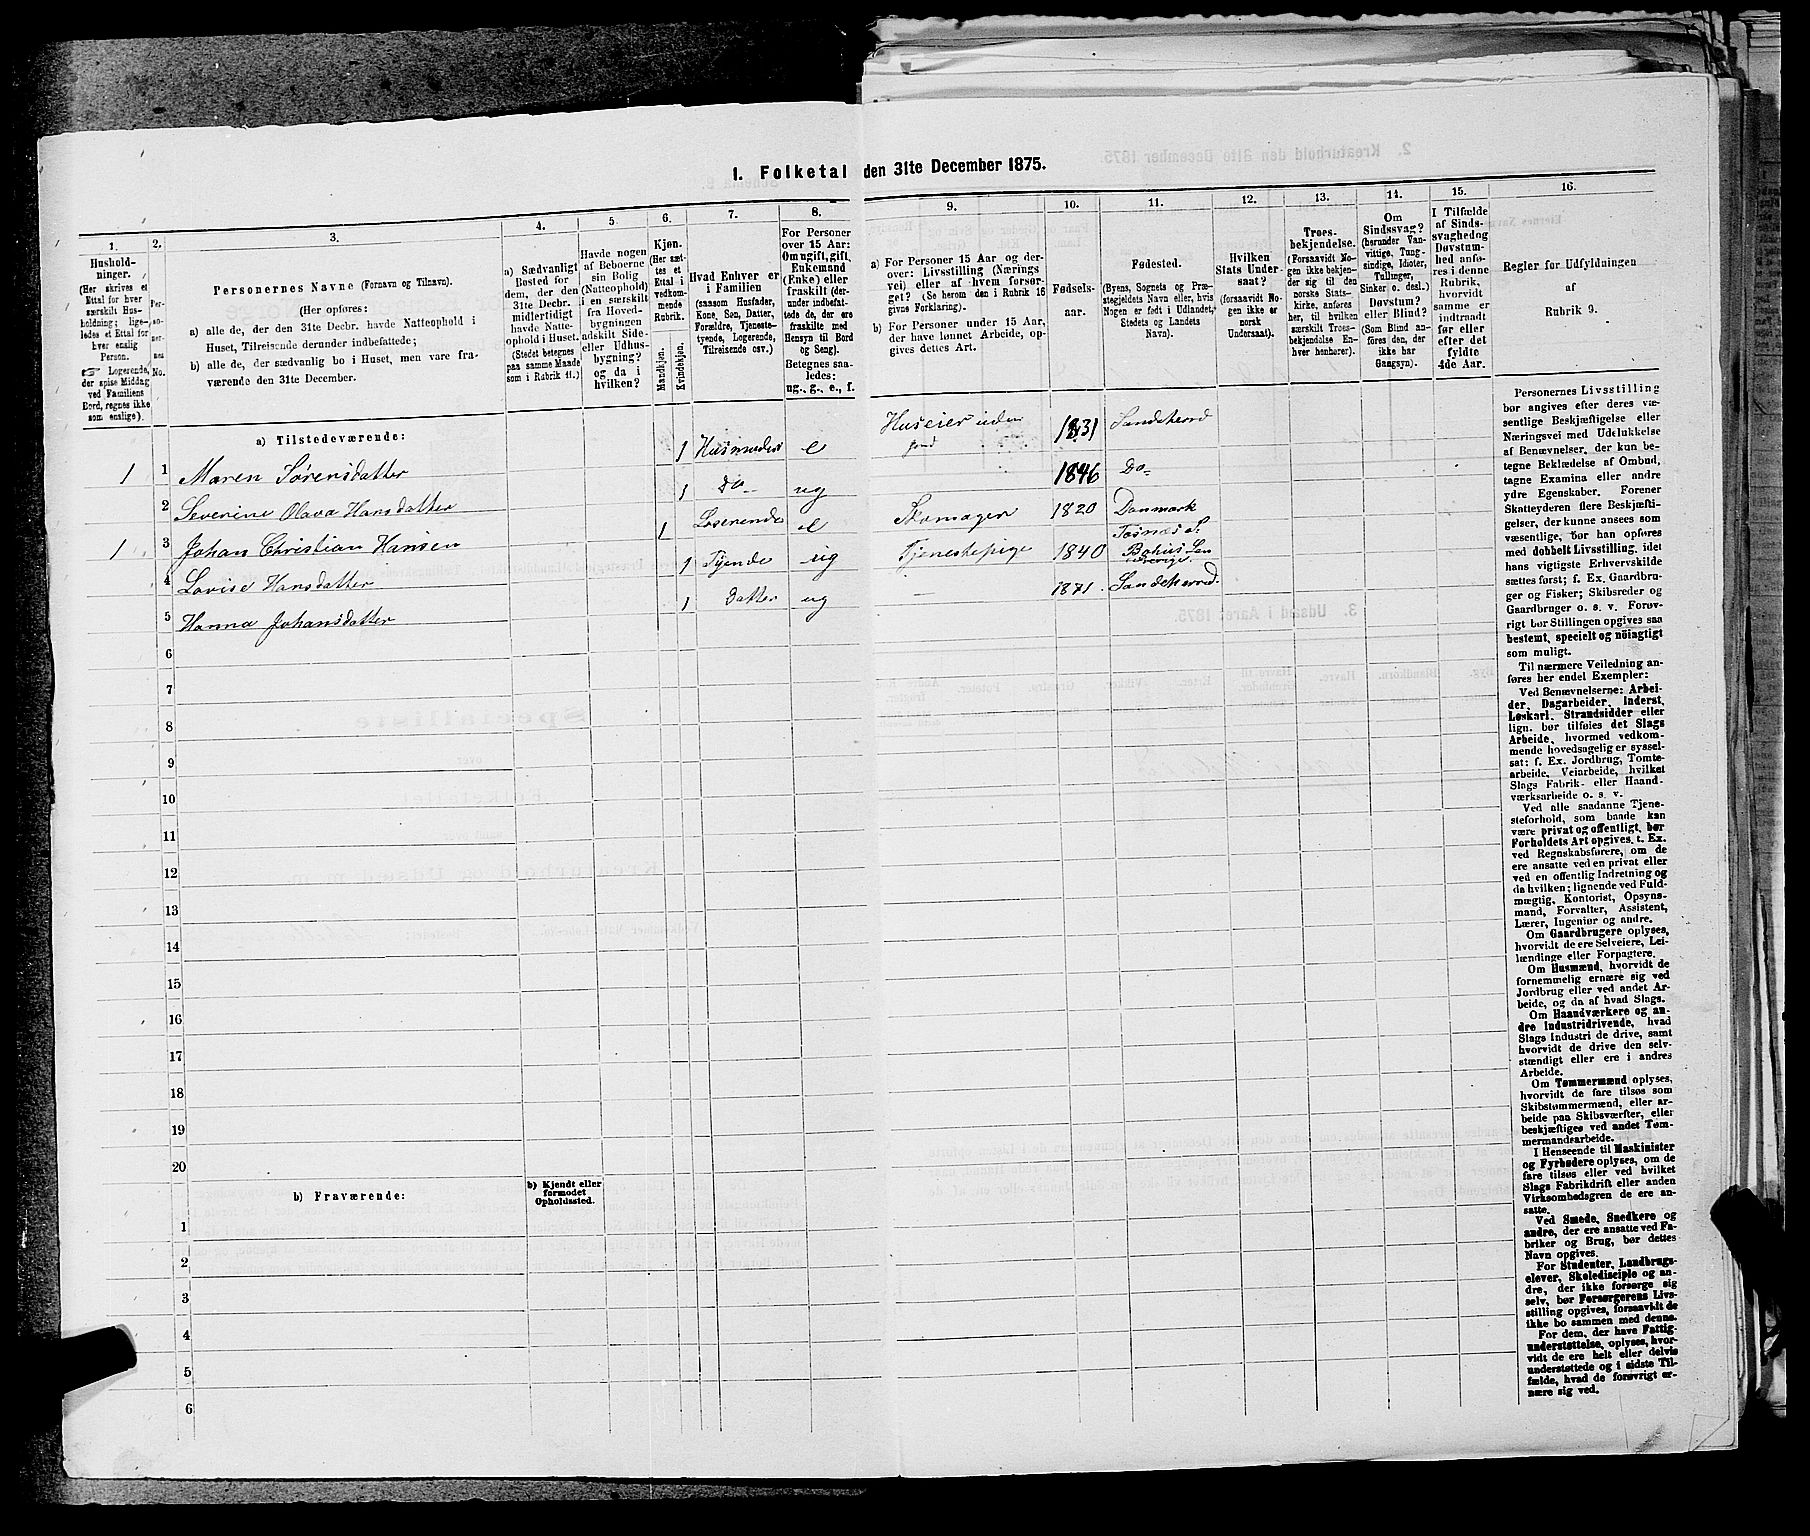 1. Folketal den 31te December 1875.
1.
2.
3.
4.
5.
6.
7.
8.
9.
10.
11.
12.
13.
14.
15.
16.
Hushold-
ninger.
(Her skrives et
Ettal for hver
særskilt Hus-
holdning; lige-
ledes et Ettal for
hver enslig
Person.
☞ Logerende,
der spise Middag
ved Familiens
Bord, regnes ikke
som enslige).
Personernes Navne (Fornavn og Tilnavn).
(Her opføres:
a) alle de, der den 31te Decbr. havde Natteophold i
Huset, Tilreisende derunder indbefattede;
b) alle de, der sædvanlig bo i Huset, men vare fra-
værende den 31te December.
a) Sædvanligt
Bosted for
dem, der den
31te Decbr.
midlertidigt
havde Natte-
ophold i Huset.
(Stedet betegnes
paa samme Maade
som i Rubrik 11.)
Havde nogen
af Beboerne
sin Bolig
(Natteophold)
i en særskilt
fra Hoved-
bygningen
adskilt Side-
eller Udhus-
bygning?
og da i
hvilken?
Kjøn.
(Her sæt-
tes et
Ettal i
vedkom-
mende
Rubrik.
Mandkjøn.
Kvindekjøn.
Hvad Enhver er
i Familien
(saasom Husfader,
Kone, Søn, Datter,
Forældre, Tjeneste-
tyende, Logerende,
Tilreisende osv.)
For Personer
over 15 Aar:
Om ugift, gift,
Enkemand
(Enke) eller
fraskilt (der-
under indbefat-
tede de, der ere
fraskilte med
Hensyn til Bord
og Seng).
Betegnes saa-
ledes:
ug., g., e., f.
a) For Personer 15 Aar og der-
over: Livsstilling (Nærings
vei) eller af hvem forsør-
get? (Se herom den i Rubrik 16
givne Forklaring).
b) For Personer under 15 Aar,
der have lønnet Arbeide, op-
gives dettes Art.
Fødsels-
aar.
Fødested.
(Byens, Sognets og Præ-
stegjeldets Navn eller, hvis
Nogen er født i Udlandet,
Stedets og Landets
Navn).
Hvilken
Stats Under-
saat?
(forsaavidt No-
gen ikke er
norsk
Undersaat).
Troes-
bekjendelse.
(Forsaavidt No-
gen ikke bekjen-
der sig til den
norske Stats-
kirke, anføres
her, til hvilken
særskilt Troes-
bekjendelse En-
hver henhører).
Om
Sindssvag?
(herunder Van-
vittige, Tung-
sindige, Idioter,
Tullinger,
Sinker o. desl.)
Døvstum?
eller Blind?
(Som Blind an-
føres den, der
ikke har
Gangsyn).
I Tilfælde
af Sinds-
svaghed og
Døvstum-
hed anfø-
res i denne
Rubrik,
hvorvidt
samme er
indtraadt
før eller
efter det
fyldte
4de Aar.
Regler før Udfyldningen
af
Rubrik 9.
a) Tilstedeværende:
1 1 Maren Sørensdatter 1 Husmoder e Huseier uden Jord 1831 Sandeherred
2 Severine Olava Hansdatter 1 Do- ug 1846 Do-
1 3 Johan Christian Hansen 1 Loserende e Skomager 1820 Danmark
4 Lovise Hansdatter 1 Tyende ug Tjenestepige 1840 Bohus Len
5 Hanna Johansdatter 1 Datter ug — 1871 Sandeherred
6
7
8
9
10
11
12
13
14
15
16
17
18
19
20
b) Fraværende:
b) Kjendt eller
formodet
Opholdssted.
1
2
3
4
5
6
Personernes Livsstilling
bør angives efter deres væ-
sentlige Beskjæftigelse eller
Næringsvei med Udelukkelse
af Benævnelser, der kun be-
tegne Beklædelse af Ombud,
tagne Examina eller andre
ydre Egenskaber. Forener
Skatteyderen flere Beskjæfti-
gelser, der kunne ansees som
væsentlige, bør han opføres
med dobbelt Livsstilling, idet
hans vigtigste Erhvervskilde
sættes først; f. Ex. Gaardbru-
ger og Fisker; Skibsreder og
Gaardbruger o. s. v. Forøv-
rigt bør Stillingen opgives saa
bestemt, specielt og nöiagtigt
som muligt.
Til nærmere Veiledning an-
føres her endel Exempler:
Ved Benævnelserne: Arbei-
der, Dagarbeider, Inderst,
Løskarl, Strandsidder eller
lign. bør tilføies det Slags
Arbeide, hvormed vedkom-
mende hovedsagelig er syssel-
sat: f. Ex. Jordbrug, Tomte-
arbeide, Veiarbeide, hvilket
Slags Fabrik- eller Haand-
værksarbeide o. s. v.
Ved alle saadanne Tjene-
steforhold, som baade kan
være privat og offentligt, bør
Forholdets Art opgives, t. Ex.
ved Regnskabsførere, om de
ere ansatte ved en privat eller
ved en offentlig Indretning og
da hvilken; lignende ved Fuld-
mægtig, Kontorist, Opsyns-
mand, Forvalter, Assistent,
Lærer, Ingeniør og andre.
Om Gaardbrugere oplyses,
hvorvidt de ere Selveiere, Lei-
lændinge eller Forpagtere.
Om Husmænd, hvorvidt de
fornemmelig ernære sig ved
Jordbrug eller ved andet Ar-
beide, og da af hvad Slags.
Om Haandværkere og an-
dre Industridrivende, hvad
Slags Industri de drive, samt
hvorvidt de drive den selv-
stændigt eller ere i andres
Arbeide.
Om Tømmermænd oplyses,
hvorvidt de fare tilsøs som
Skibstømmermænd, eller ar-
beide paa Skibsværfter, eller
beskjæftiges ved andet Tøm-
mermandsarbeide.
I Henseende til Maskinister
og Fyrbødere oplyses, om de
fare tilsøs eller ved hvilket
Slags Fabrikdrift eller anden
Virksomhedsgren de ere an-
satte.
Ved Smede, Snedkere og
andre, der ere ansatte ved Fa-
briker og Brug, bør dettes
Navn opgives.
For Studenter, Landbrugs-
elever, Skoledisciple og an-
dre, der ikke forsørge sig
selv, bør Forsørgerens Livs-
stilling opgives, forsaavidt de
ikke bo sammen med denne.
For dem, der have Fattig-
understøttelse, oplyses, hvor-
vidt de ere helt eller delvis
understøttede og i sidste Til-
fælde, hvad de forøvrigt er-
nære sig ved.